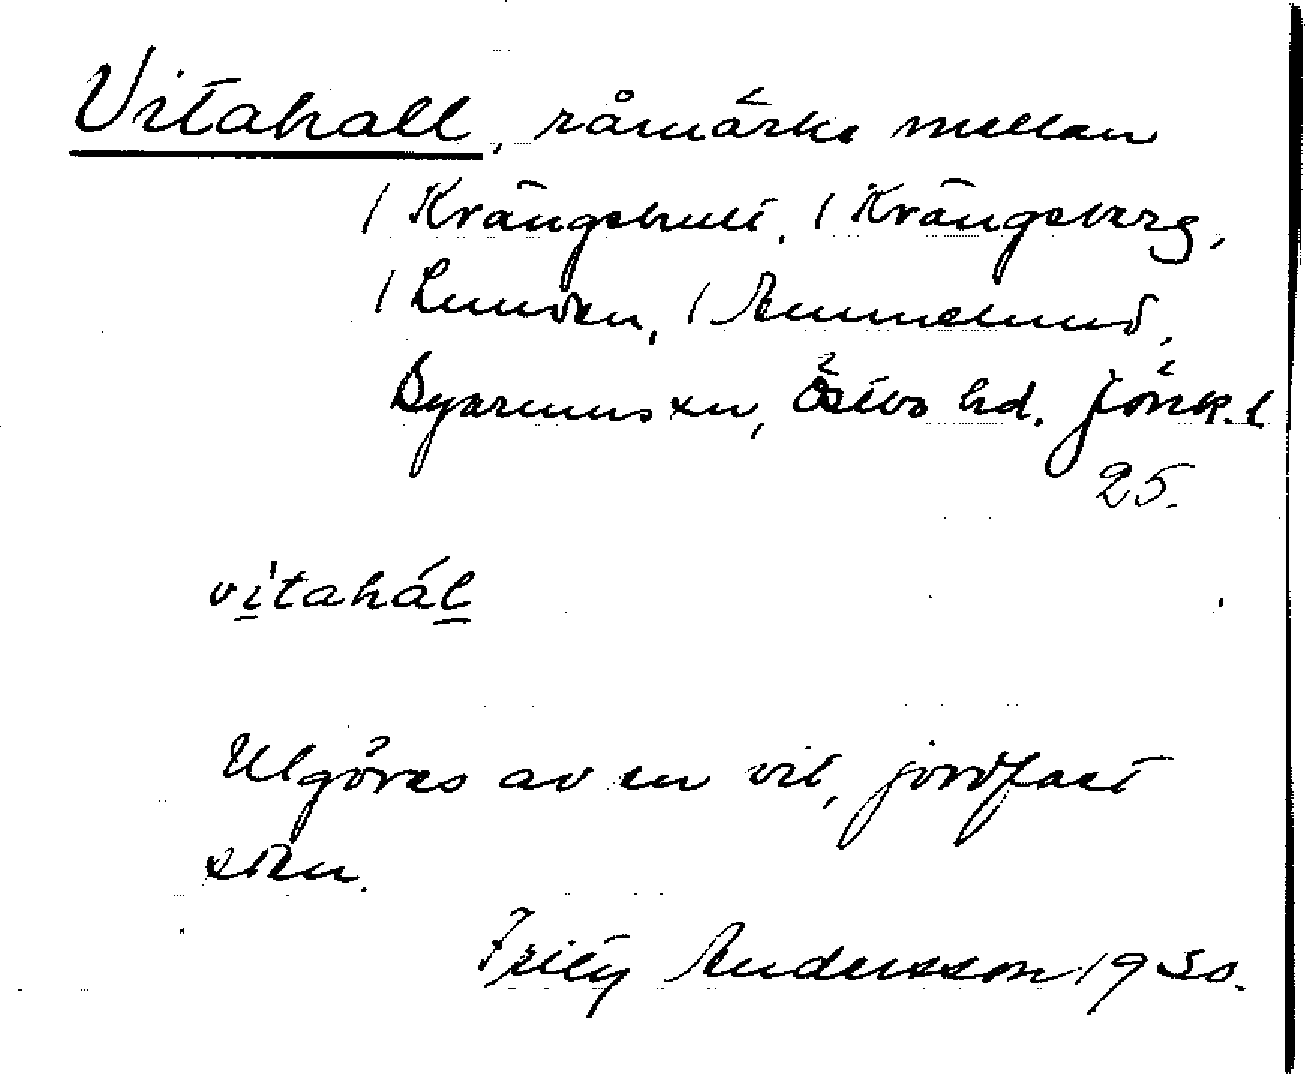 Vitahall, råmärke mellan
/ Krängshult, / Krängsberg,
/ Lunden, / Ammelund,
Byarums sn, Östbo hd. Jönk. l
25.
vi̱'taháḻ
Utgöres av en vit, jordfast
sten.
Frity Andersson 1930.